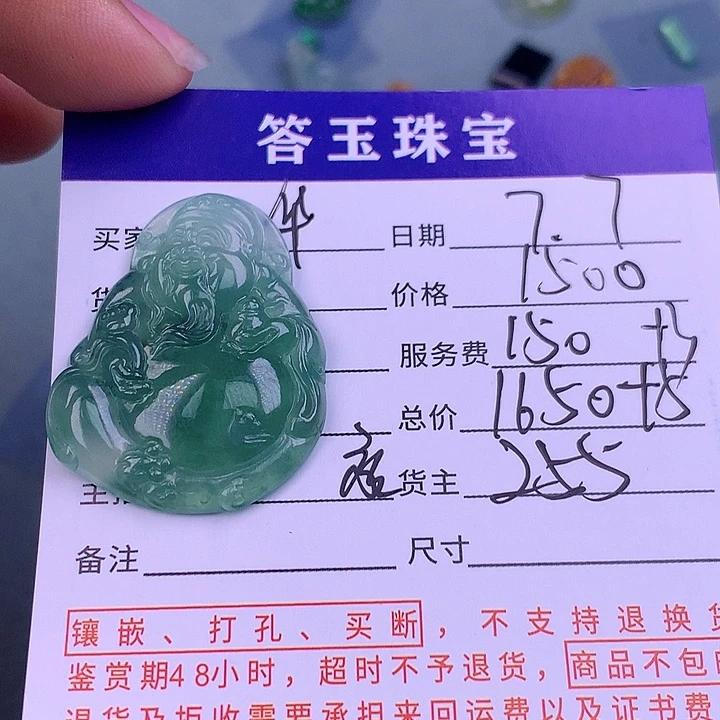 答玉珠宝
买家 华 日期 7.7
价格 1500
服务费 150 +5
总价 1650+5
货主 255
备注 尺寸
镶嵌、打孔、买断，不支持退换货
鉴赏期48小时，超时不予退货，商品不包邮
退货及拒收需要承担来回运费以及证书费